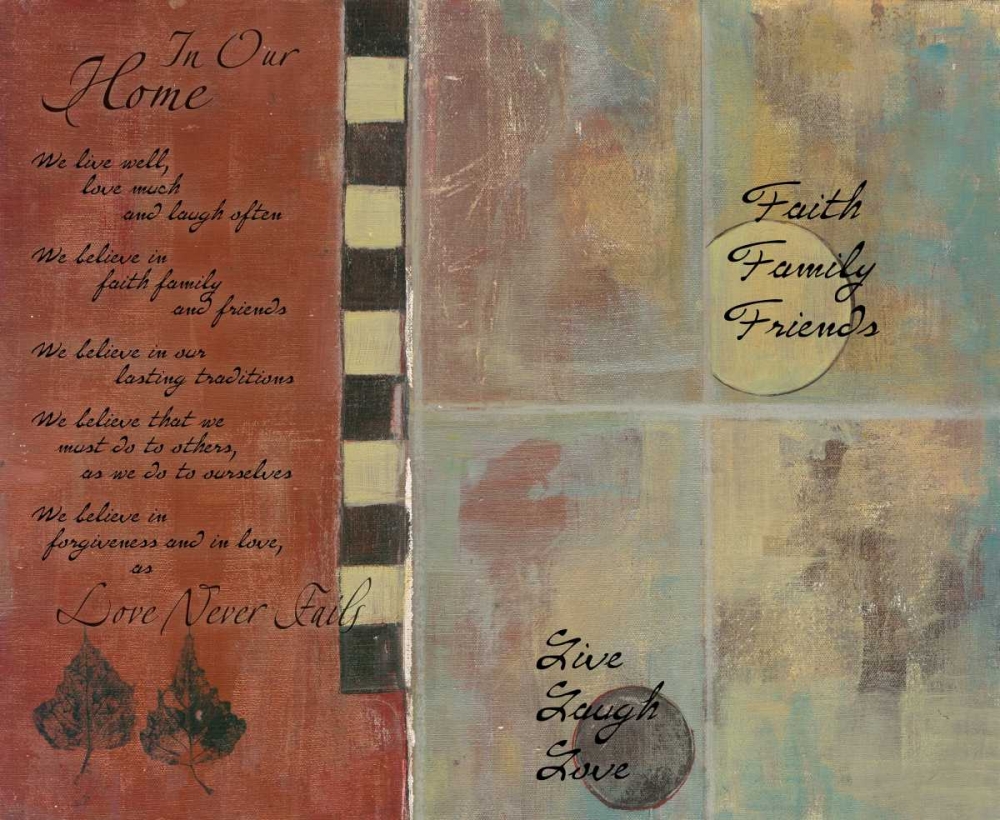 In Our
Home
We live well,
love much
and laugh often
We believe in
faith family
and friends
We believe in our
lasting traditions
We believe that we
must do to others,
as we do to ourselves
We believe in
forgiveness and in love,
as
Love Never Fails
Faith
Family
Friends
Live
Laugh
Love